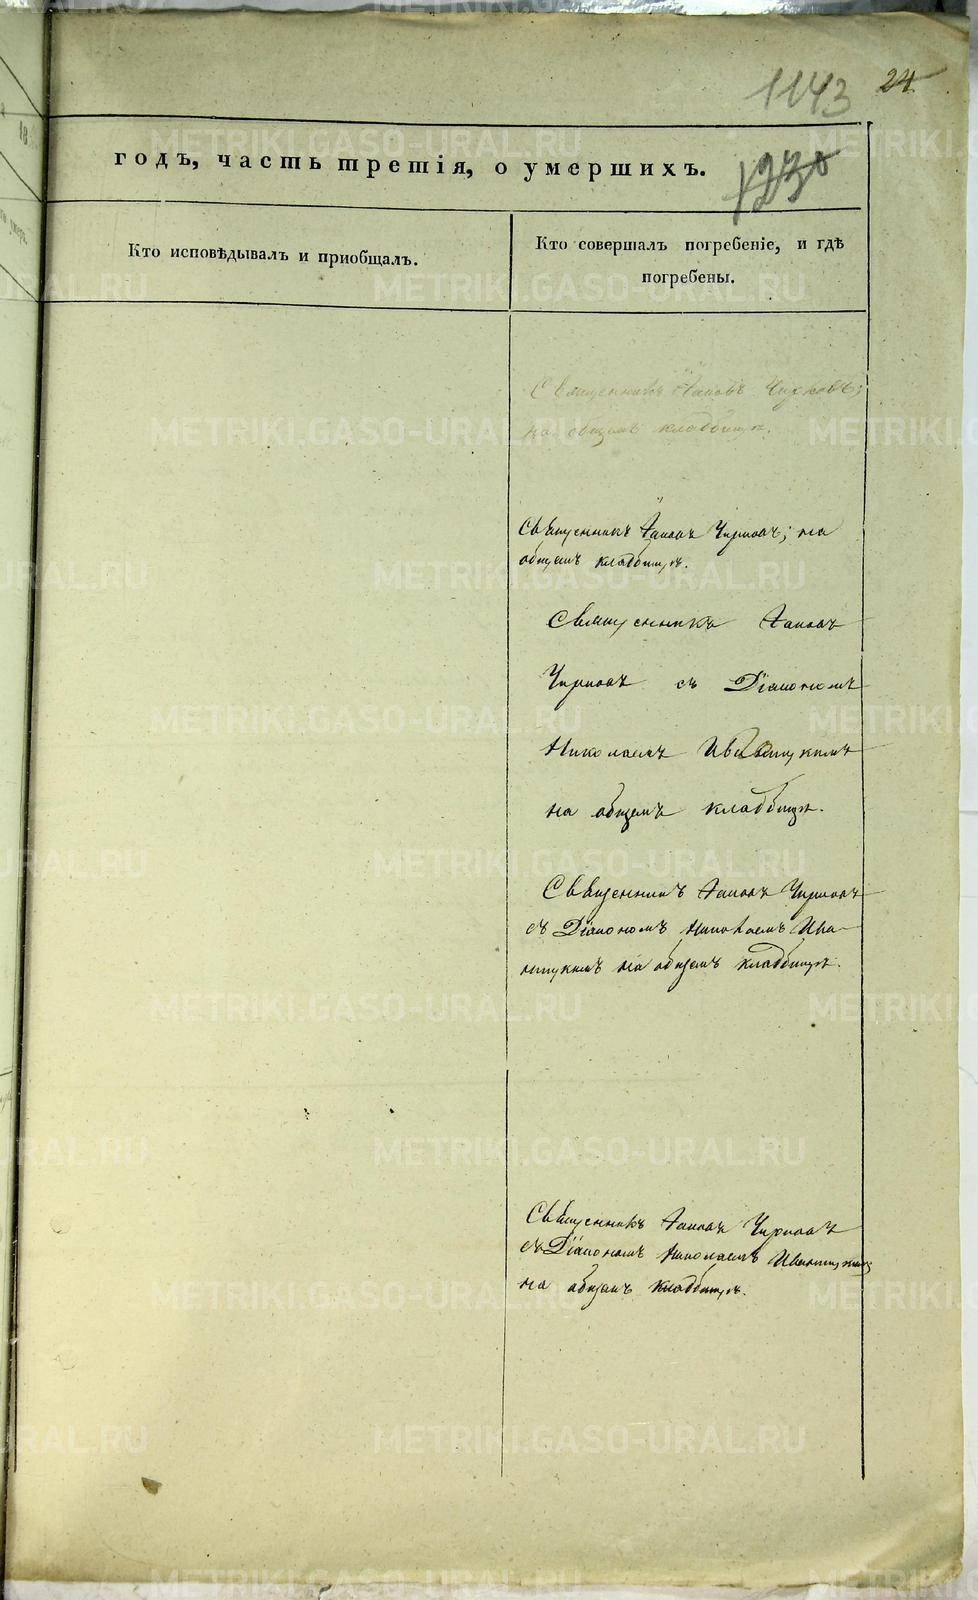 1143 24
годъ, часть третія, о умершихъ.
1230
Кто исповѣдывалъ и приобщалъ.
Кто совершалъ погребеніе, и гдѣ
погребены.
Священникъ Іаковъ Чирковъ;
на общемъ кладбищѣ.
Священникъ Іаковъ Чирковъ; на
общемъ кладбищѣ.
Священникъ Іаковъ
Чирковъ съ Діакономъ
Николаемъ
на общемъ кладбищѣ.
Священникъ Іаковъ Чирковъ
съ Діакономъ Николаемъ
на общемъ кладбищѣ.
Священникъ Іаковъ Чирковъ
съ Діакономъ Николаемъ
на общемъ кладбищѣ.
METRIKI.GASO-URAL.RU